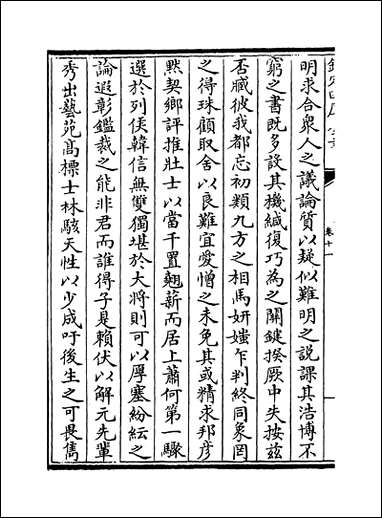 明求合衆人之議論質以疑似難明之說課其浩博不
窮之書既多設其機緘復巧為之關鍵揆厥中失按兹
否臧彼我都忘初類九方之相馬妍媸乍判終同象罔
之得珠顧取舍以良難宜愛憎之未免其或精求邦彦
黙契鄉評推壯士以當千置翹薪而居上蕭何第一驟
選於列侯韓信無雙獨堪於大將則可以厚塞紛紜之
論遐彰鑑裁之能非君而誰得子是賴伏以解元先輩
秀出藝苑髙標士林駭天性以少成吁後生之可畏雋